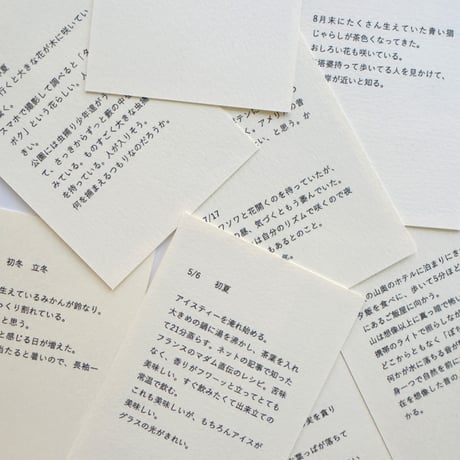 夏
行くと大きな花が木に咲いてい
く。
スマホで撮影して調べると「タ
ボク」という花らしい。
きい。
公園には虫捕り少年達が
て、さっきからずっと藪の中
みている。ものすごく大きな虫
を持っている。人が入りそう。
何を捕まえるつもりなのだろうか。
8月末にたくさん生えていた青い猫
じゃらしが茶色くなってきた。
おしろい花も咲いている。
塔婆持って歩いてる人を見かけて、
岸が近いと知る。
く。アメリカ
の音
い、と思う。か
7/17
ワソワと花開くのを待っていたが、
の昼、気づくともう萎んでいた。
は自分のリズムで咲くので夜
もあるとのこと。
初冬 立冬
生えているみかんが鈴なり。
っくり割れている。
と思う。
と感じる日が増えた。
当たると暑いので、長袖一
5/6 初夏
アイスティーを淹れ始める。
大きめの鍋に湯を沸かし、茶葉を入れ
て21分蒸らす。ネットの記事で知った
フランスのマダム直伝のレシピ。苦味
なく、香りがフワーッと立ってとても
美味しい。すぐ飲みたくて出来立ての
常温で飲む。
これも美味しいが、もちろんアイスが
美味しい。
グラスの光がきれい。
の山嵐のホテルに泊まりにき
飯を食べに、歩いて5分ほ
にあるご飯屋に向かう。
山は想像以上に真っ暗で怖
携帯のライトで照らしなが
どこからともなく「ぼ
何かが水に落ちる音が
身一つで自然を前に
在を想像した昔の
かる。
の実を貪り
葉っぱが落ちて